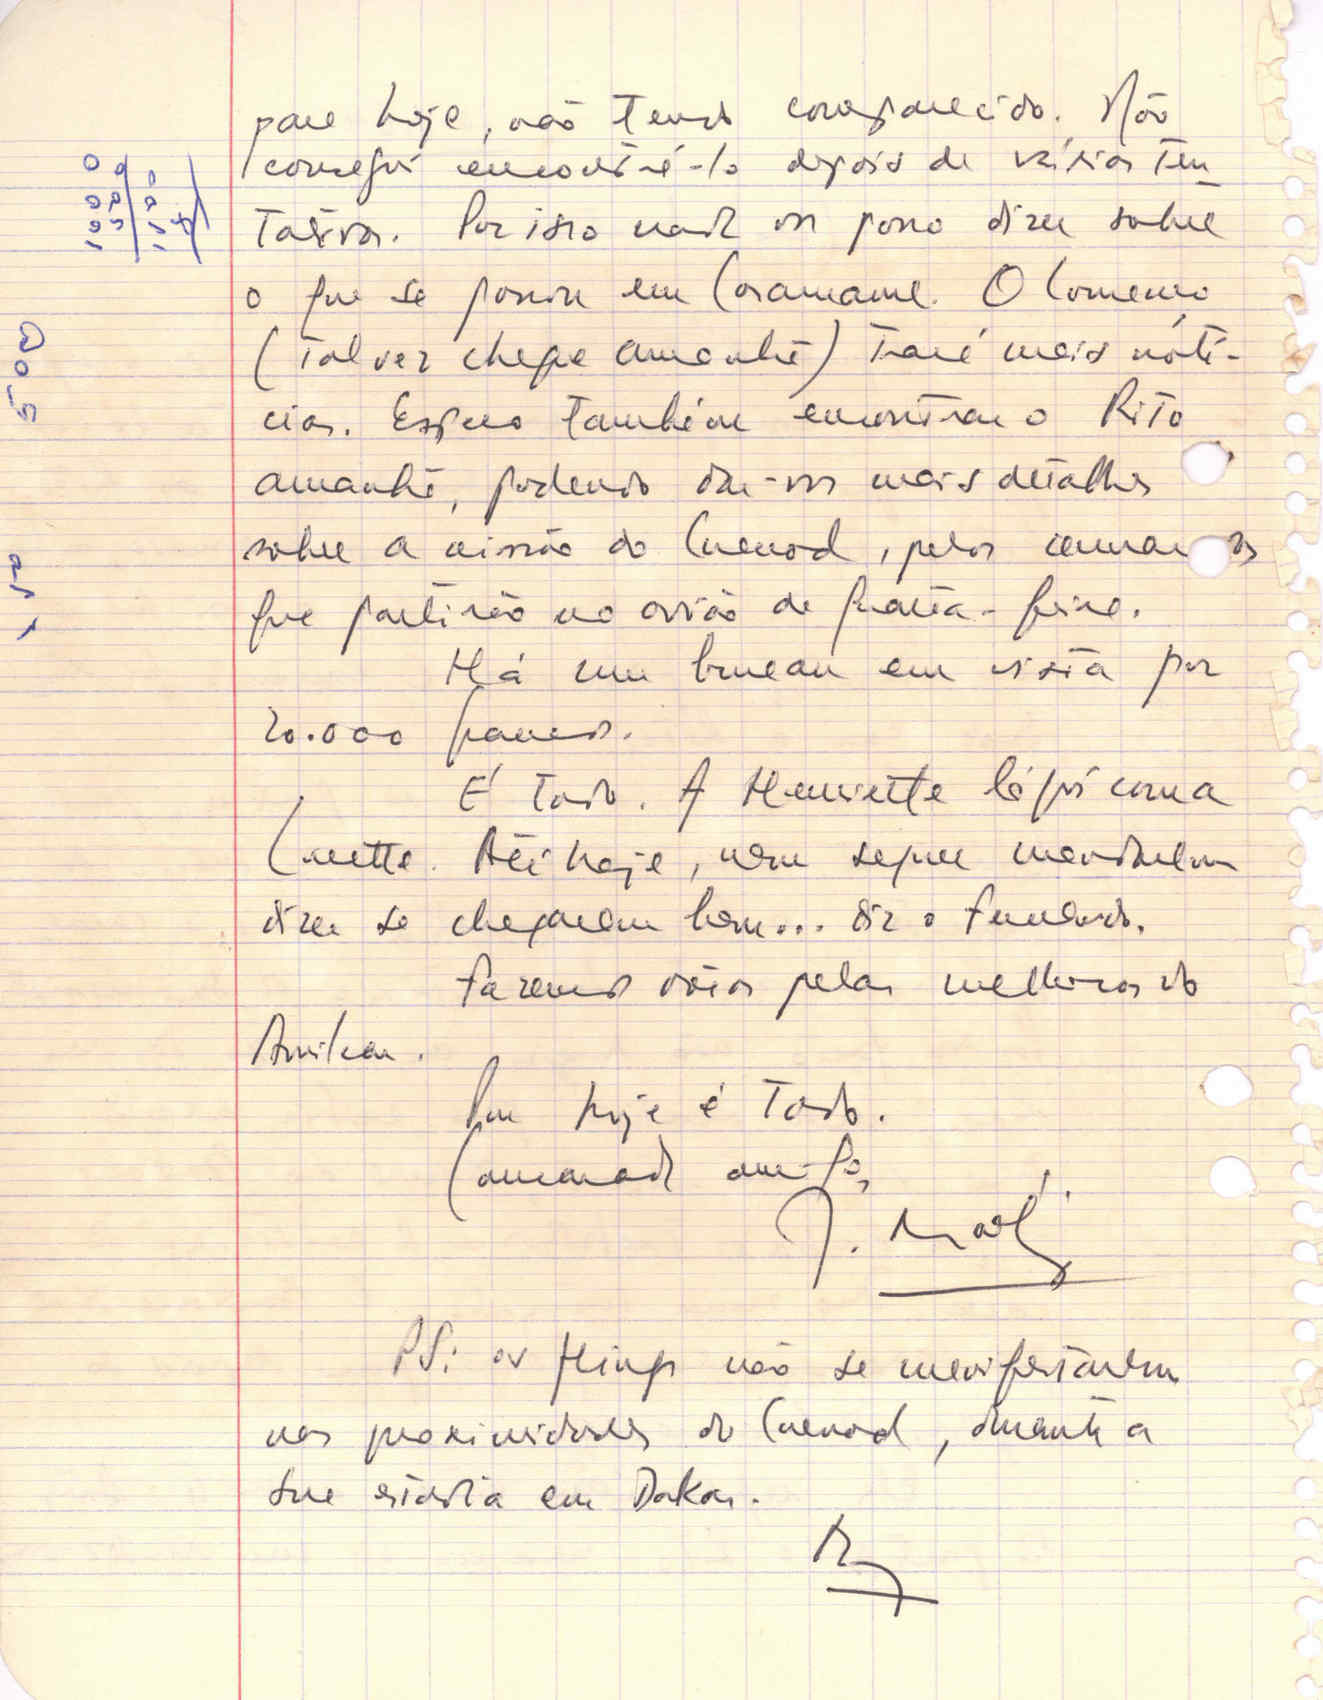 para hoje, não tendo comparecido. Não
consegui encontrá-lo depois de várias ten
tativas. Por isso nada vos posso dizer sobre
o que se passou em Casamance. O Lourenço
(talvez chegue amanhã) trará mais notí-
cias. Espero também encontrar o Rito
amanhã, podendo dar-vos mais detalhes
sobre a missão do Cuenod, pelos camaradas
que partirão no avião de quarta-feira.
Há um bureau em vista por
20.000 francos.
É tudo. A Henriette lá foi com a
Lucette. Até hoje, nem sequer mandaram
dizer se chegaram bem... diz o Fernando.
Fazemos votos pelas melhoras do
Amilcar.
Por hoje é tudo.
Camarada amigo,
PS: os não se manifestaram
nas proximidades do Cuenod, durante a
sua estadia em Dakar.
1000
500
150
500
150